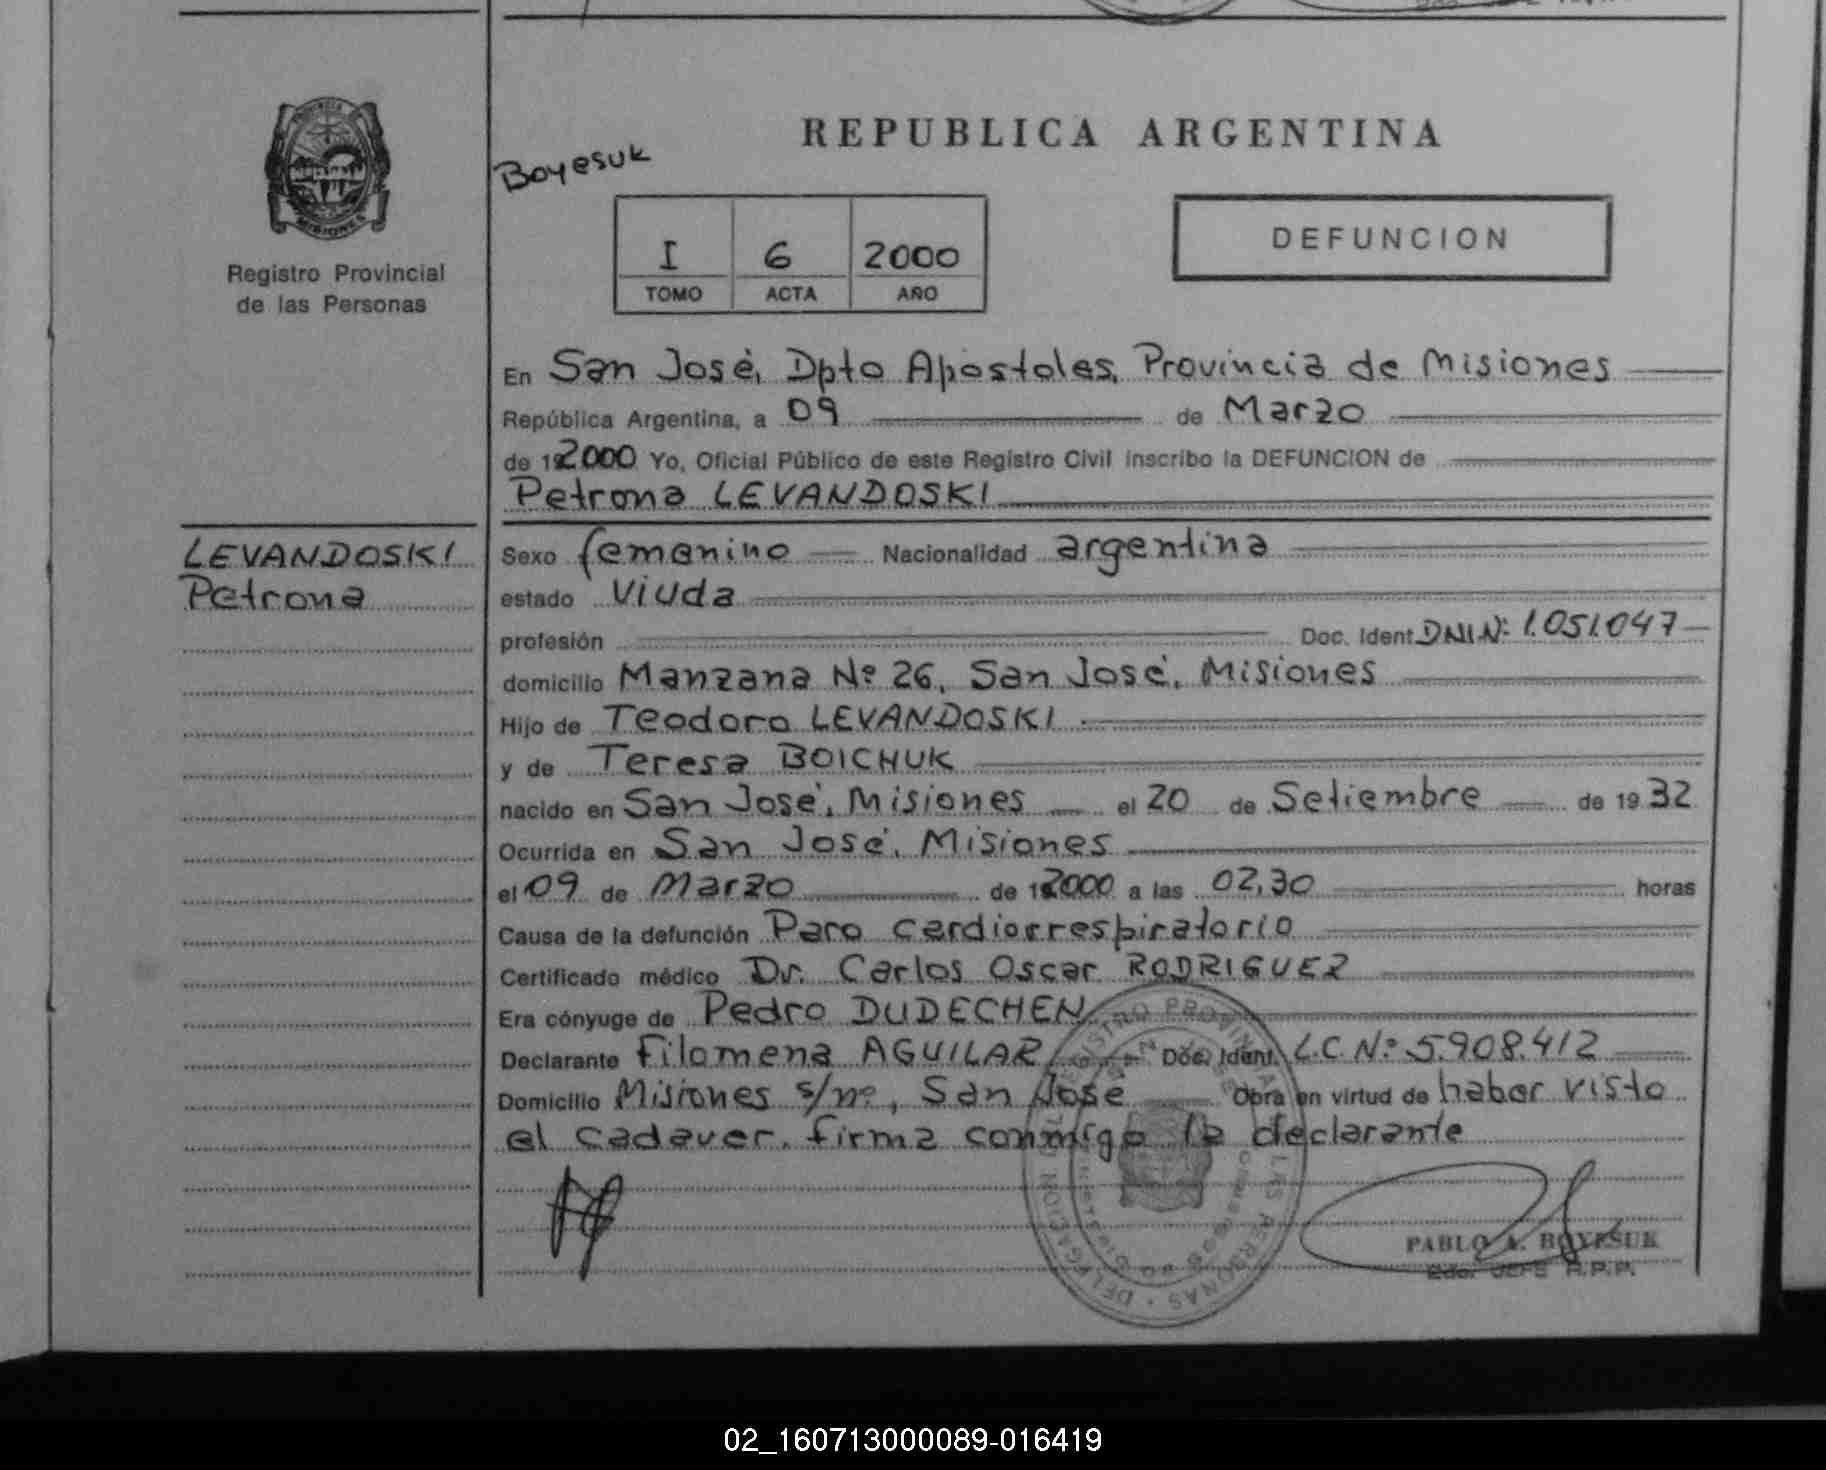 REPUBLICA ARGENTINA
Boyesuk
Registro Provincial
de las Personas
I 6 2000
TOMO ACTA AÑO
DEFUNCION
En San José, Dpto Apóstoles, Provincia de Misiones
República Argentina, a 09 de Marzo
de 192000 Yo, Oficial Público de este Registro Civil inscribo la DEFUNCION de
Petrona LEVANDOSKI
LEVANDOSKI
Petrona
Sexo femenino Nacionalidad argentina
estado viuda
profesión Doc. Ident DNI Nº: 1.051.047
domicilio Manzana Nº 26, San José, Misiones
Hijo de Teodoro LEVANDOSKI
y de Teresa BOICHUK
nacido en San José, Misiones el 20 de Setiembre de 19 32
Ocurrida en San José, Misiones
el 09 de Marzo de 192000 a las 02,30 horas
Causa de la defunción Paro cardiorrespiratorio
Certificado médico Dr. Carlos Oscar RODRIGUEZ
Era cónyuge de Pedro DUDECHEN
Declarante Filomena AGUILAR Doc. Ident. L.C. Nº 5.908.412
Domicilio Misiones s/nº, San José Obra en virtud de haber visto
el cadaver, firma conmigo la declarante
REGISTRO PROVINCIAL DE LAS PERSONAS · DELEGACION
PABLO A. BOYESUK
JEFE R.P.P.
02_160713000089-016419